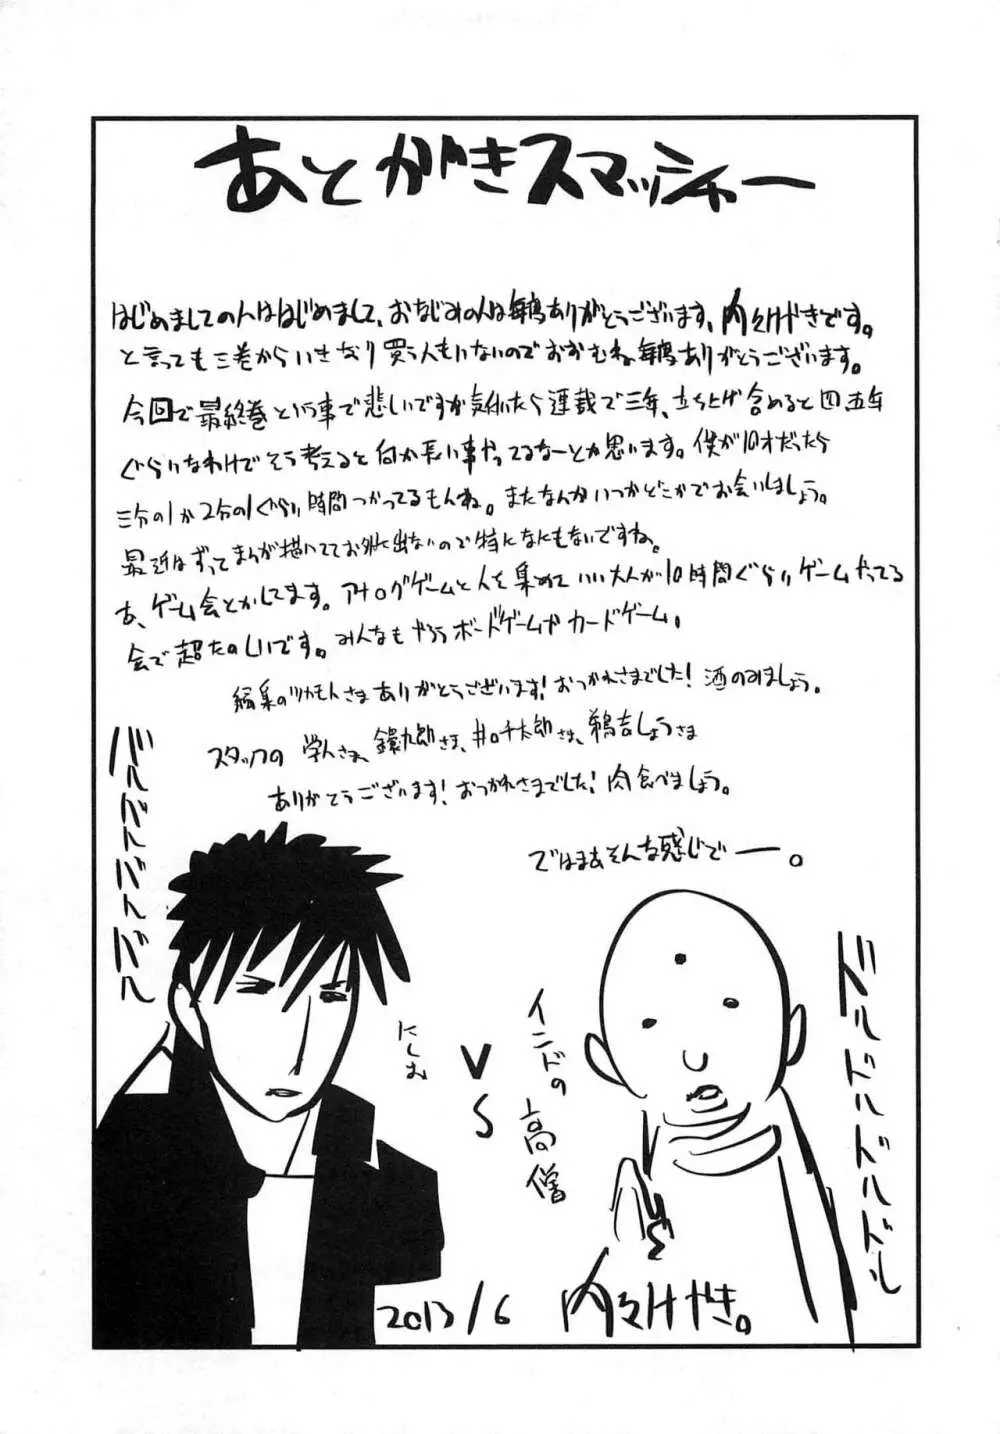 あとがきスマッシャー
はじめましての人ははじめまして、おなじみの人は毎度ありがとうございます、内々けやきです。
と言っても三巻からいきなり買う人もいないのでおおむね毎度ありがとうございます。
今回で最終巻という事で悲しいですが気付いたら連載で三年、立ち上げ含めると四、五年
ぐらいなわけでそう考えると何か長い事やってるなーとか思います。僕が10才だったら
三分の1か2分の1ぐらい時間つかってるもんね。またなんかいつかどこかでお会いしましょう。
最近はずってまんが描いててお外に出ないので特になにもないですね。
あ、ゲーム会とかしてます。アナログゲームと人を集めていい大人が10時間ぐらいゲームやってる
会で超たのしいです。みんなもやろうボードゲームやカードゲーム。
編集のツカモトさまありがとうございます!おつかれさまでした!酒のみましょう。
スタッフの 学人さま、九郎さま、井口千太郎さま、吉しょうさま
ありがとうございます!おつかれさまでした!肉食べましょう。
ではまあそんな感じでー。
バルバトルバトルバル
にしむ
VS
インドの高僧
ドルドルドルドルドル
2013/6 内々けやき。